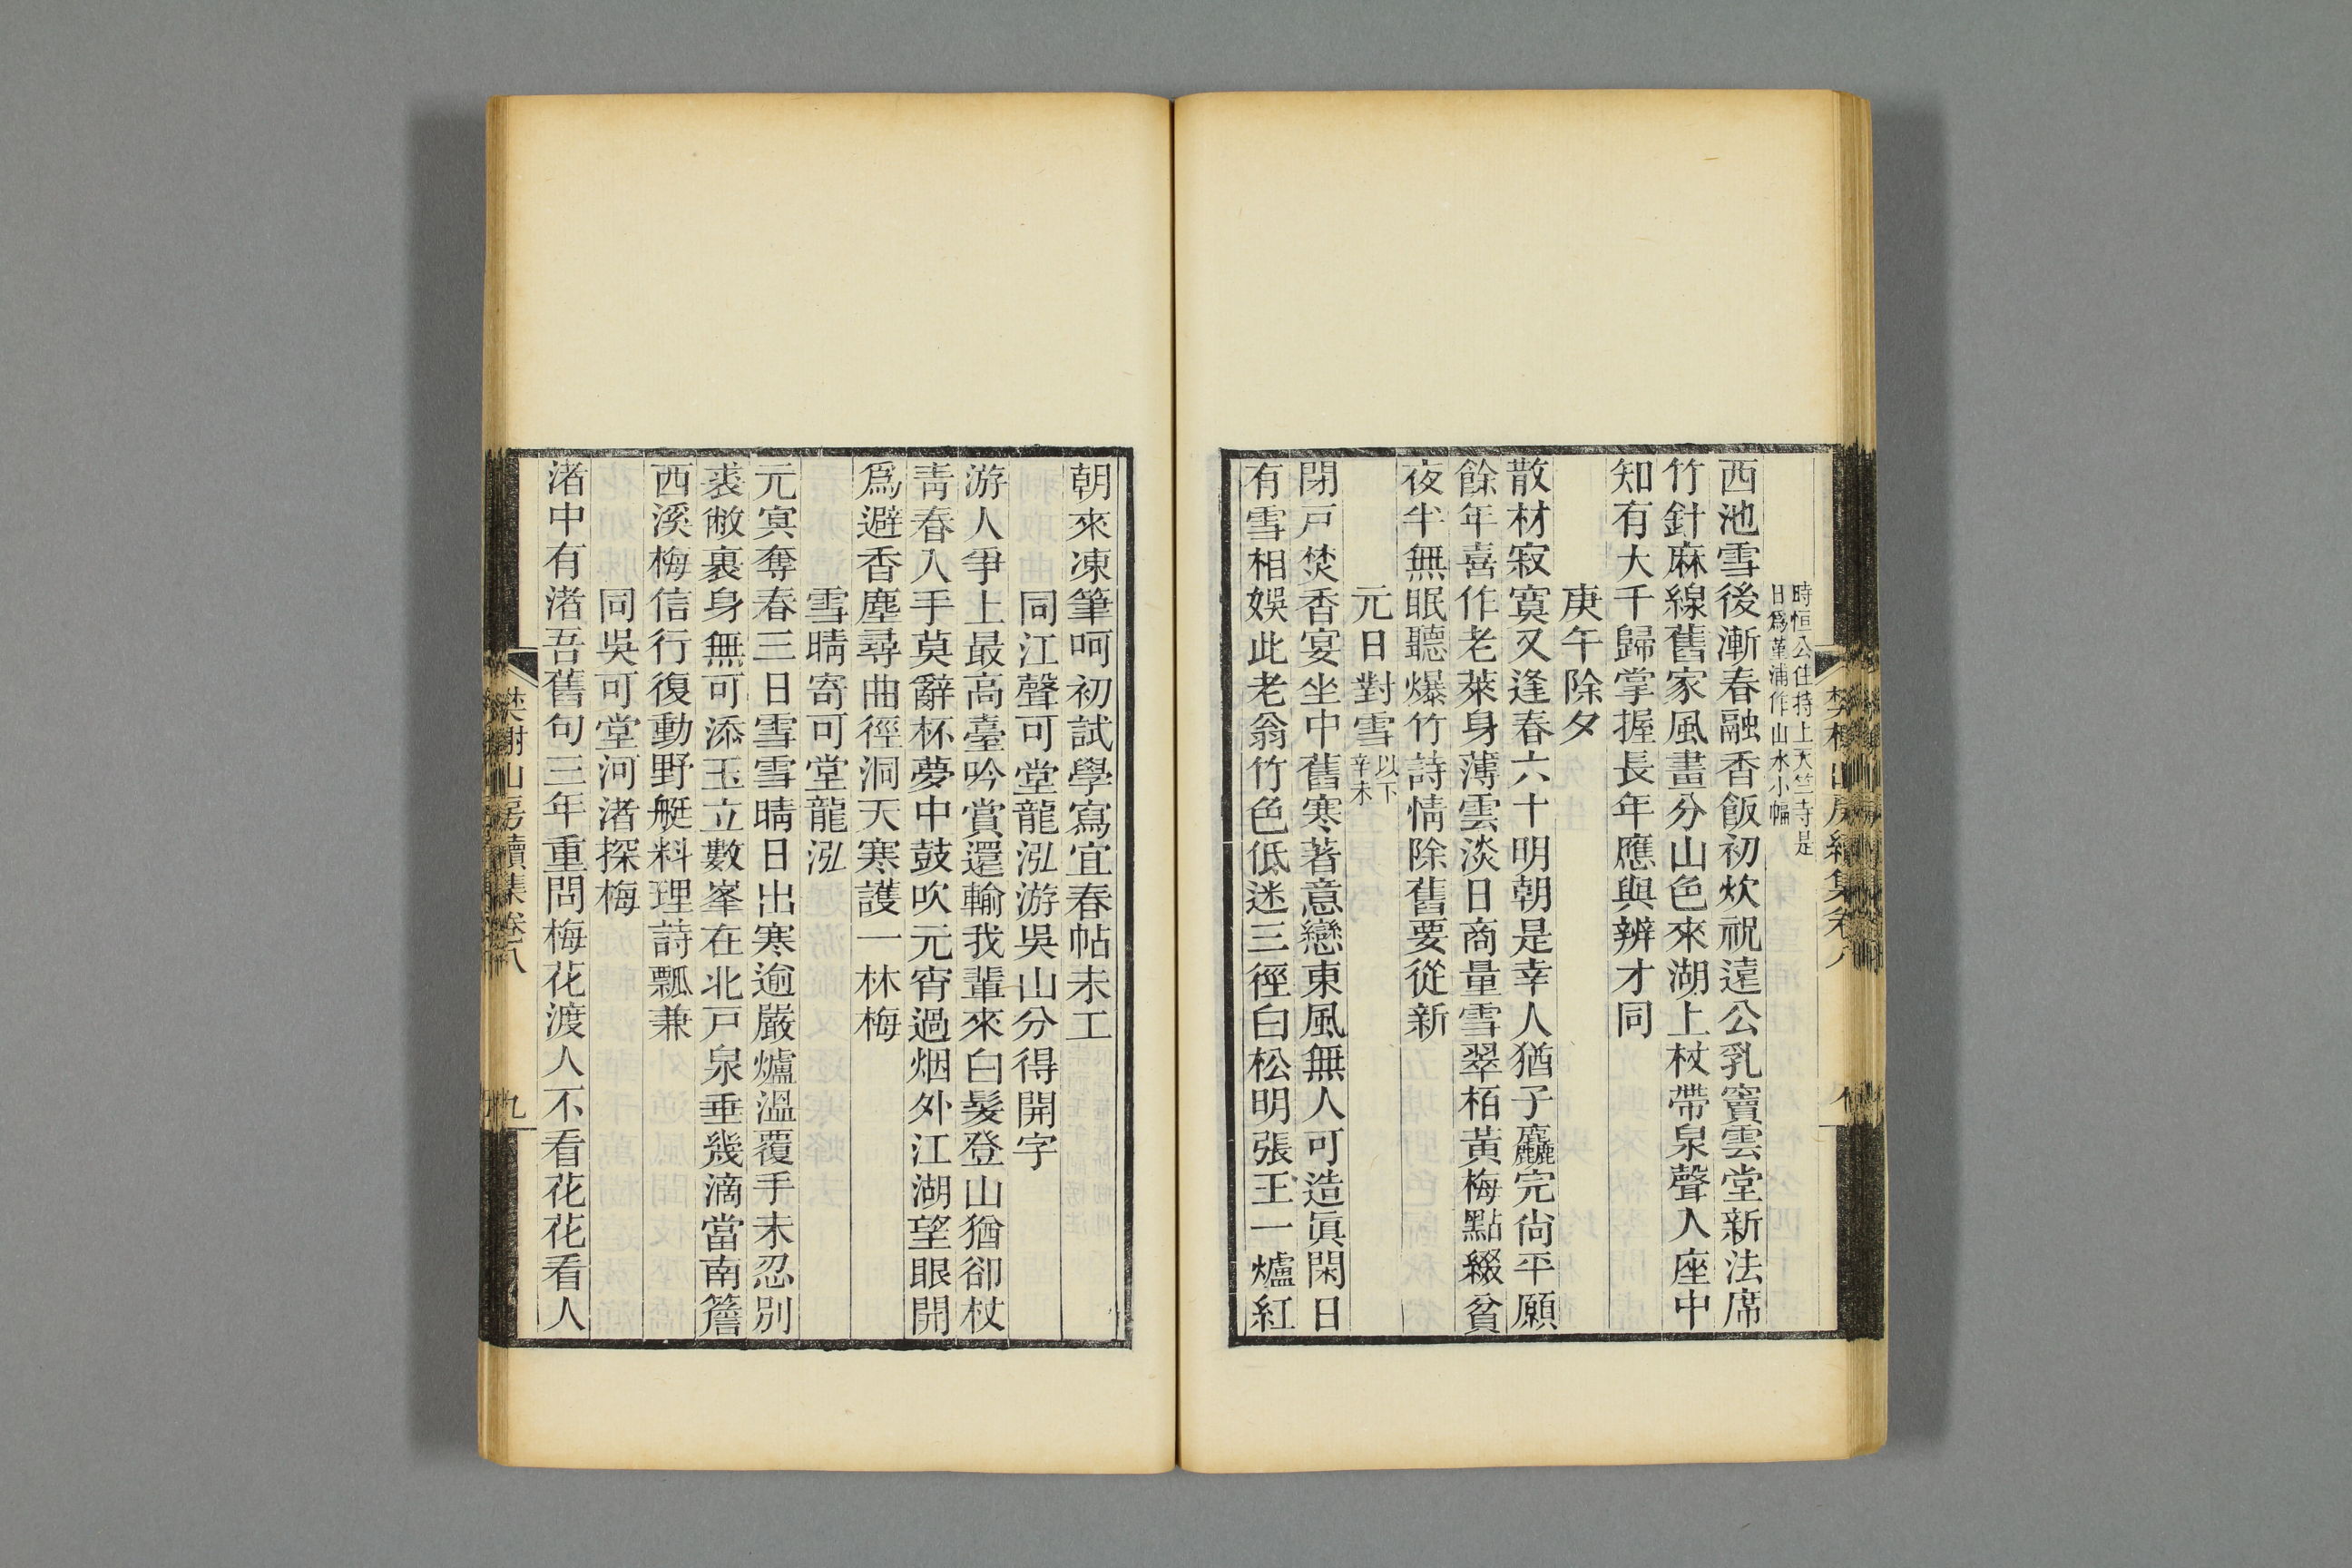 時恒公住持上天竺寺是
日爲堇浦作山水小幅
西池雪後漸春融香飯初炊祝遠公乳竇雲堂新法席
竹針麻線舊家風畫分山色來湖上杖帶泉聲入座中
知有大千歸掌握長年應與辨才同
庚午除夕
散材寂寞又逢春六十明朝是幸人猶子麤完尙平願
餘年喜作老萊身薄雲淡日商量雪翠栢黃梅點綴貧
夜半無眠聽爆竹詩情除舊要從新
元日對雪以下辛未
閉戸焚香宴坐中舊寒著意戀東風無人可造眞閑日
有雪相娛此老翁竹色低迷三徑白松明張王一爐紅
朝來凍筆呵初試學寫宜春帖未工
同江聲可堂龍泓游吳山分得開字
游人爭上最高臺吟賞還輸我輩來白髮登山猶卻杖
靑春入手莫辭杯夢中鼓吹元宵過烟外江湖望眼開
爲避香塵尋曲徑洞天寒護一林梅
雪晴寄可堂龍泓
元㝠奪春三日雪雪晴日出寒逾嚴爐溫覆手未忍別
裘敝裹身無可添玉立數峯在北戸泉垂幾滴當南簷
西溪梅信行復動野艇料理詩瓢兼
同吳可堂河渚探梅
渚中有渚吾舊句三年重問梅花渡人不看花花看人
樊榭山房續集卷八
九